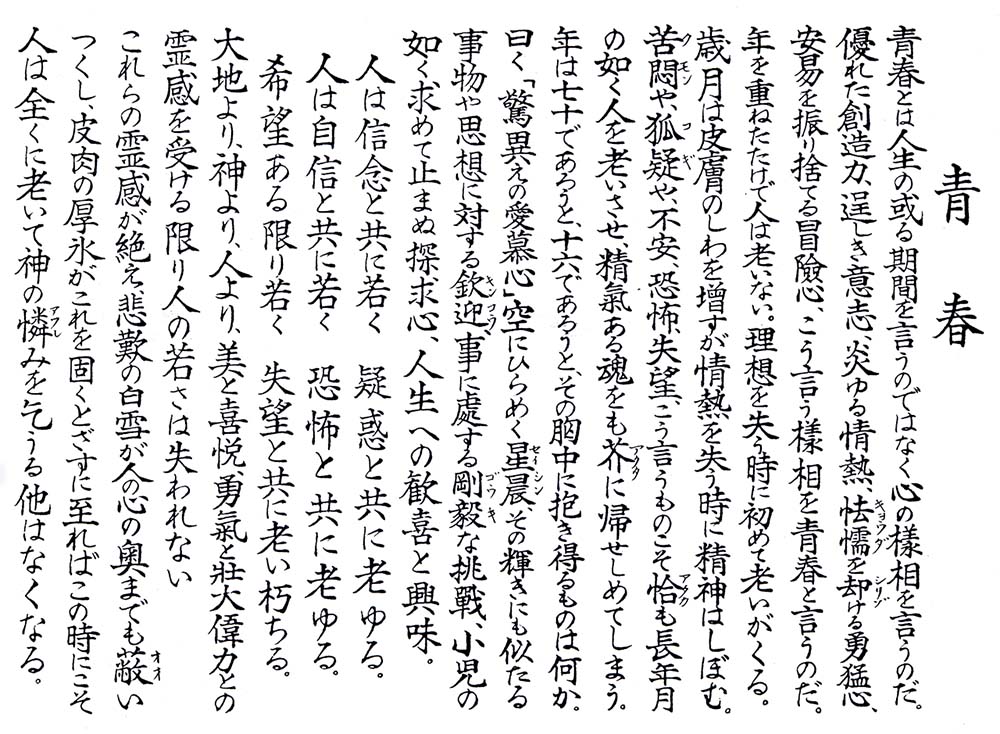 青春
青春とは人生の或る期間を言うのではなく心の樣相を言うのだ。
キョウダ シリゾ
優れた創造力、逞しき意志、炎ゆる情熱、怯懦を却ける勇猛心、
安易を振り捨てる冒險心、こう言う樣相を青春と言うのだ。
年を重ねただけで人は老いない。理想を失う時に初めて老いがくる。
歳月は皮膚のしわを増すが情熱を失う時に精神はしぼむ。
クモン コギ アタカ
苦悶や、狐疑や、不安、恐怖、失望、こう言うものこそ恰も長年月
アクタ
の如く人を老いさせ、精氣ある魂をも芥に帰せしめてしまう。
年は七十であろうと、十六であろうと、その胸中に抱き得るものは何か。
セイシン
曰く「驚異えの愛慕心」空にひらめく星晨、その輝きにも似たる
キンコウ ゴウキ
事物や思想に対する欽迎、事に處する剛毅な挑戰、小児の
如く求めて止まぬ探求心、人生への歓喜と興味。
人は信念と共に若く 疑惑と共に老ゆる。
人は自信と共に若く 恐怖と共に老ゆる。
希望ある限り若く 失望と共に老い朽ちる。
大地より、神より、人より、美と喜悦、勇氣と壯大偉力との
霊感を受ける限り人の若さは失われない
オオ
これらの霊感が絶え、悲歎の白雪が人の心の奥までも蔽い
つくし、皮肉の厚氷がこれを固くとざすに至ればこの時にこそ
アワレ
人は全くに老いて神の憐みを乞うる他はなくなる。